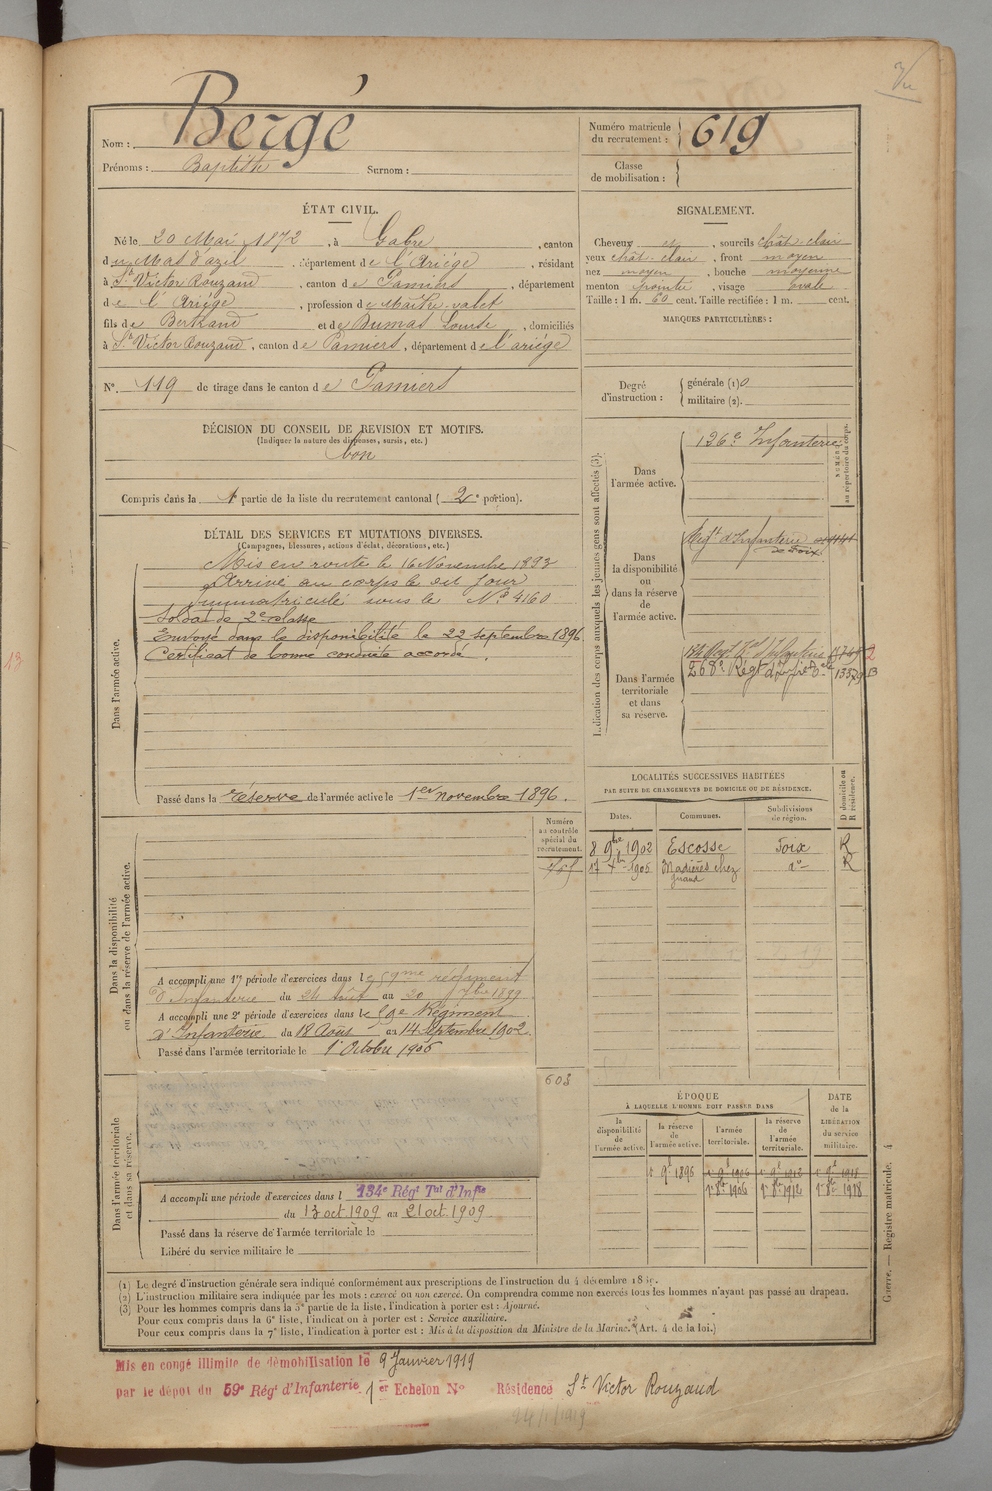 Nom : Bergé
Prénoms : Baptiste Surnom :
Numéro matricule du recrutement : 619
Classe de mobilisation :
ÉTAT CIVIL.
Né le 20 Mai 1872, à Gabre, canton
du Mas d'azil, département de l'Ariége, résidant
à St Victor Rouzaud, canton de Pamiers, département
de l'Ariége, profession de Maître-valet
fils de Bertrand et de Dumas Louise, domiciliés
à St Victor Rouzaud, canton de Pamiers, département de l'ariége
N°. 119 de tirage dans le canton de Pamiers
SIGNALEMENT.
Cheveux et, sourcils chât-clair
yeux chât-clair, front moyen
nez moyen, bouche moyenne
menton pointu, visage ovale
Taille : 1 m. 60 cent. Taille rectifiée : 1 m. cent.
MARQUES PARTICULIÈRES :
Degré d'instruction :
générale (1) 0
militaire (2).
DÉCISION DU CONSEIL DE REVISION ET MOTIFS.
(Indiquer la nature des dispenses, sursis, etc.)
bon
Compris dans la 1e partie de la liste du recrutement cantonal ( 2e portion).
DÉTAIL DES SERVICES ET MUTATIONS DIVERSES.
(Campagnes, blessures, actions d'éclat, décorations, etc.)
Dans l'armée active.
Mis en route le 16 Novembre 1893
Arrivé au corps le dit jour
Immatriculé sous le N° 4160
Soldat de 2e classe
Envoyé dans la disponibilité le 22 septembre 1896.
Certificat de bonne conduite accordé.
Passé dans la réserve de l'armée active le 1er novembre 1896.
Indication des corps auxquels les jeunes gens sont affectés (3).
NUMÉRO au répertoire du corps.
Dans l'armée active.
126e Infanterie
Dans la disponibilité ou dans la réserve de l'armée active.
Régt d'Infanterie
de Foix
Dans l'armée territoriale et dans sa réserve.
268e Régt d'Infie
13379
LOCALITÉS SUCCESSIVES HABITÉES
PAR SUITE DE CHANGEMENTS DE DOMICILE OU DE RÉSIDENCE.
D domicile ou R résidence.
Dates. Communes. Subdivisions de région.
8 9bre 1902 Escosse Foix R
17 1905 Madières chez do R
Dans la disponibilité ou dans la réserve de l'armée active.
Numéro au contrôle spécial du recrutement.
A accompli une 1re période d'exercices dans le 59me régiment
d'Infanterie du 24 août au 20 7bre 1899
A accompli une 2e période d'exercices dans le 59e Régiment
d'Infanterie du 18 Août au 14 septembre 1902
Passé dans l'armée territoriale le 1er Octobre 1906
Dans l'armée territoriale et dans sa réserve.
603
A accompli une période d'exercices dans l 134e Régt Tal d'Infie
du 13 oct 1909 au 21 oct. 1909
Passé dans la réserve de l'armée territoriale le
Libéré du service militaire le
ÉPOQUE
À LAQUELLE L'HOMME DOIT PASSER DANS
DATE de la LIBÉRATION du service militaire.
la disponibilité de l'armée active. la réserve de l'armée active. l'armée territoriale. la réserve de l'armée territoriale.
1r 9b 1896 1r 9b 1906 1r 9b 1912 1r 9b 1918
1r 8bre 1906 1r 8bre 1912 1r 8bre 1918
Guerre. — Registre matricule. 4
(1) Le degré d'instruction générale sera indiqué conformément aux prescriptions de l'instruction du 4 décembre
(2) L'instruction militaire sera indiquée par les mots : exercé ou non exercé. On comprendra comme non exercés tous les hommes n'ayant pas passé au drapeau.
(3) Pour les hommes compris dans la 5e partie de la liste, l'indication à porter est : Ajourné.
Pour ceux compris dans la 6e liste, l'indication à porter est : Service auxiliaire.
Pour ceux compris dans la 7e liste, l'indication à porter est : Mis à la disposition du Ministre de la Marine. (Art. 4 de la loi.)
Mis en congé illimité de démobilisation le 9 Janvier 1919
par le dépot du 59e Régt d'Infanterie 1er Echelon No Résidence St Victor Rouzaud